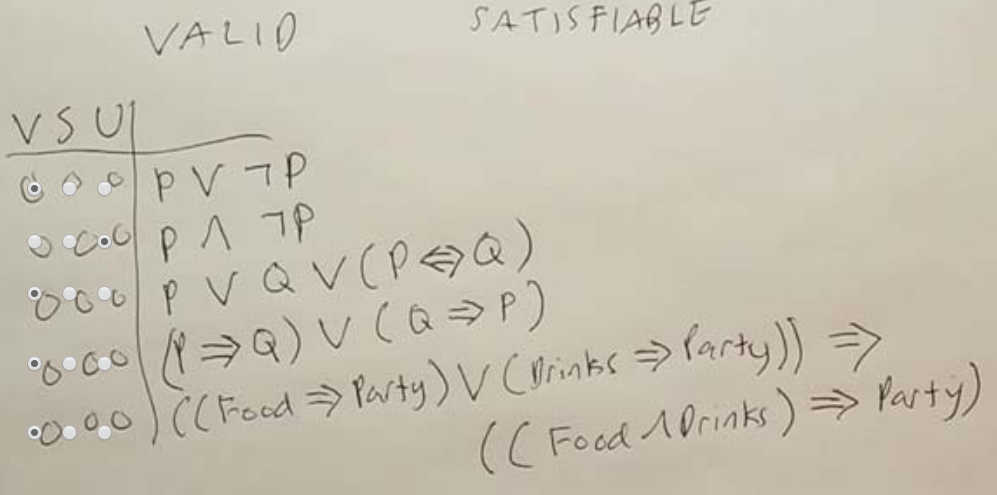 VALID SATISFIABLE
V S U
P ∨ ¬P
P ∧ ¬P
P ∨ Q ∨ (P ⇔ Q)
(P ⇒ Q) ∨ (Q ⇒ P)
((Food ⇒ Party) ∨ (Drinks ⇒ Party)) ⇒
((Food ∧ Drinks) ⇒ Party)